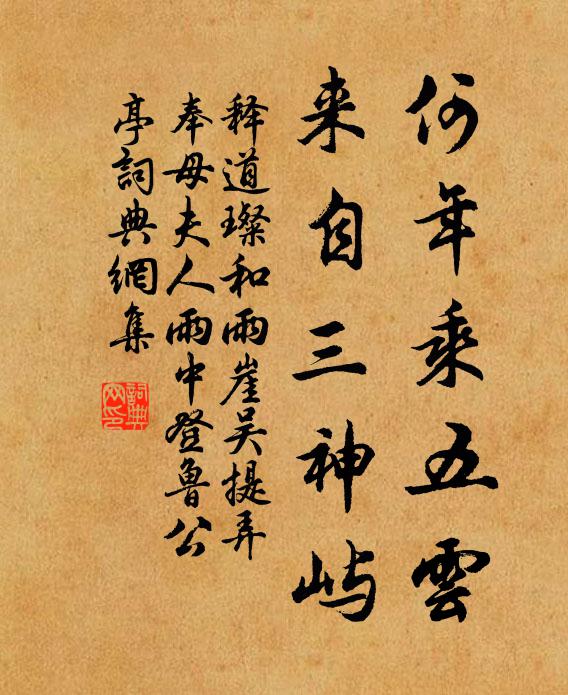 何年乘五雲
来自三神屿
释道璨和雨崖吴提弄
奉母夫人雨中登鲁公
亭詞典網集
詞典
网印